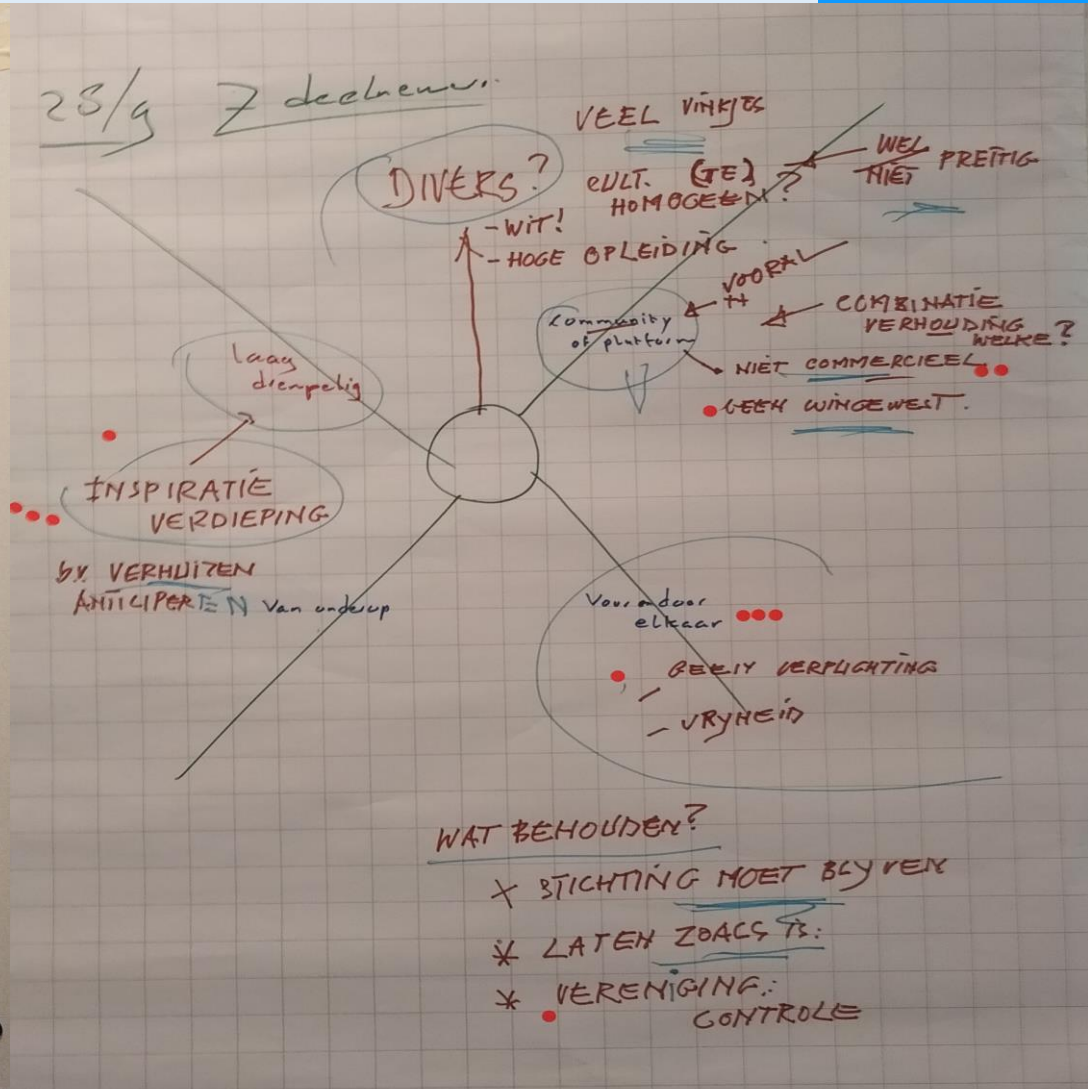 25/9 7 deelnemers
VEEL VINKJES
DIVERS?
CULT. (TE)
HOMOGEEN?
WEL
NIET PRETTIG
- WIT!
- HOGE OPLEIDING
VOORAL
++
Community
of platform
COMBINATIE
VERHOUDING
WELKE?
NIET COMMERCIEEL
GEEN WINGEWEST.
laag
drempelig
INSPIRATIE
VERDIEPING
bv. VERHUIZEN
ANTICIPEREN van onderop
Voor en door
elkaar
- GEEN VERPLICHTING
- VRYHEID
WAT BEHOUDEN?
X STICHTING MOET BLYVEN
* LATEN ZOALS IS.
* VERENIGING:
CONTROLE